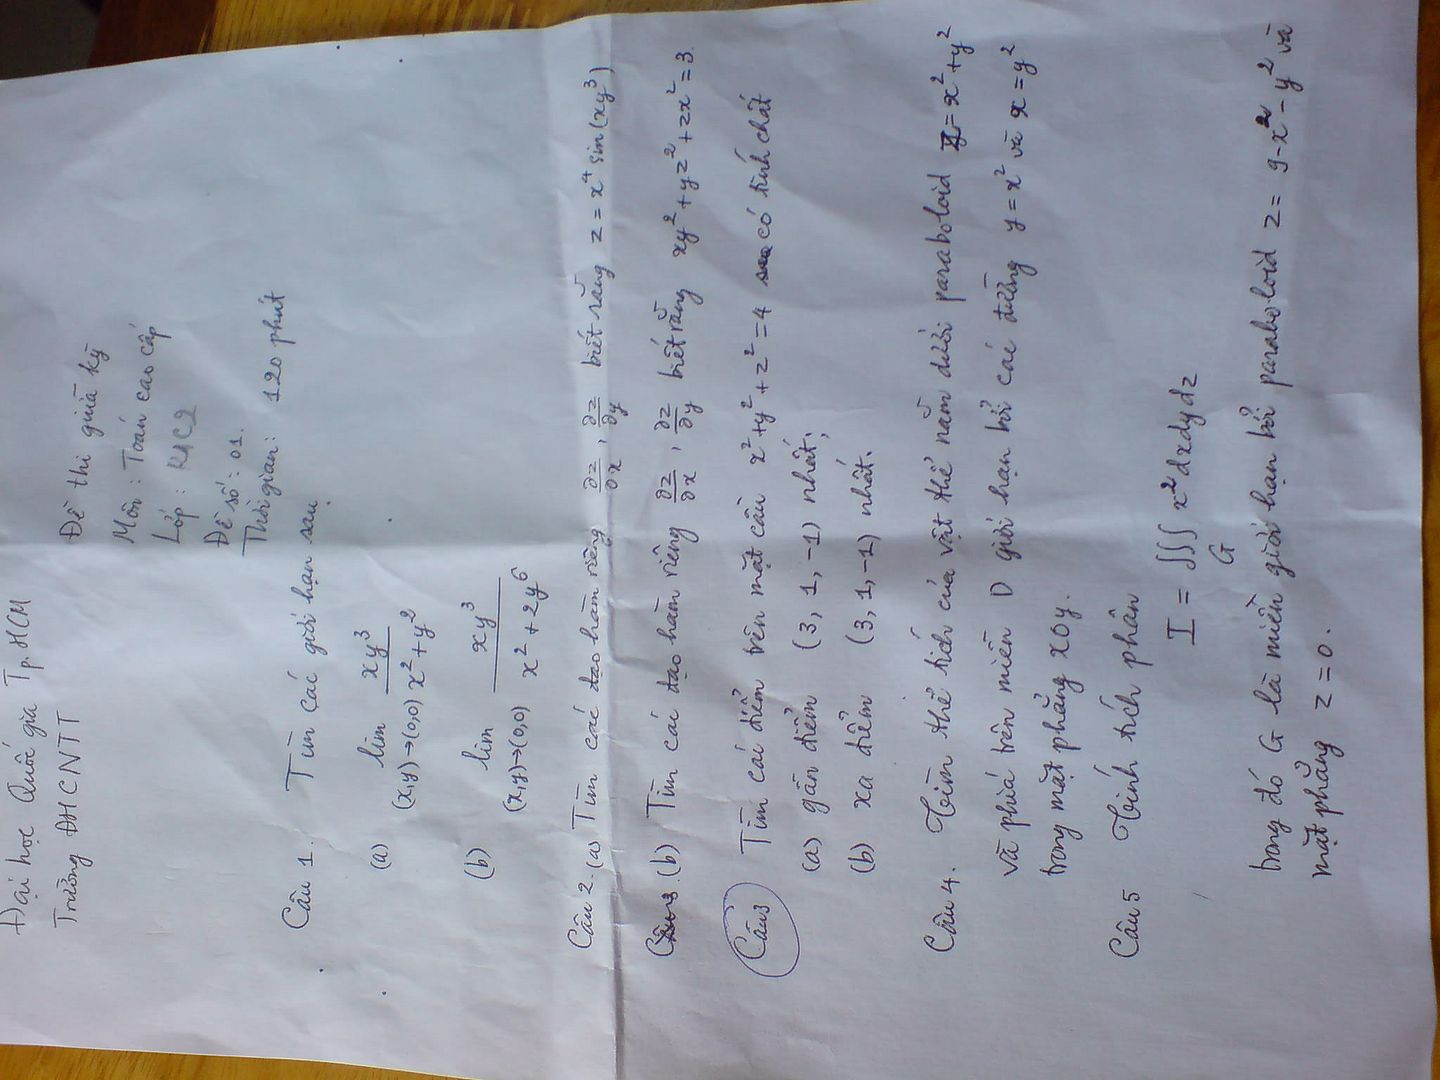 Đại học Quốc gia Tp. HCM
Trường ĐHCNTT
Đề thi giữa kỳ
Môn: Toán cao cấp
Lớp:
Đề số: 01.
Thời gian: 120 phút
Câu 1. Tìm các giới hạn sau
(a) lim (x,y)→(0,0) xy³ / x² + y²
(b) lim (x,y)→(0,0) xy³ / x² + 2y⁶
Câu 2. (a) Tìm các đạo hàm riêng ∂z/∂x, ∂z/∂y biết rằng z = x⁴ sin(xy³)
(b) Tìm các đạo hàm riêng ∂z/∂x, ∂z/∂y biết rằng xy² + yz² + zx² = 3.
Câu 3 Tìm các điểm trên mặt cầu x² + y² + z² = 4 có tính chất
(a) gần điểm (3, 1, -1) nhất,
(b) xa điểm (3, 1, -1) nhất.
Câu 4. Tìm thể tích của vật thể nằm dưới paraboloid = x² + y²
và phía trên miền D giới hạn bởi các đường y = x² và x = y²
trong mặt phẳng xOy.
Câu 5 Tính tích phân
I = ∭_G x² dx dy dz
trong đó G là miền giới hạn bởi paraboloid z = 9 - x² - y² và
mặt phẳng z = 0.